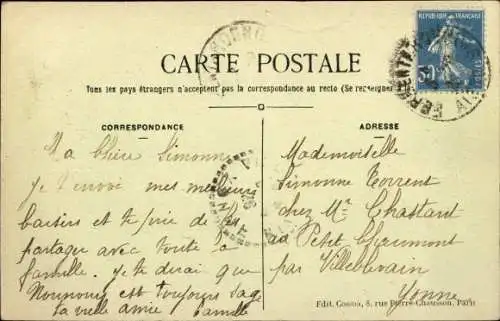 CARTE POSTALE
Tous les pays étrangers n'acceptent pas la correspondance au recto (Se renseigner
CORRESPONDANCE
Ma chère Simonne
je t'envoi mes meilleurs
baisers et te prie de les
partager avec toute la
famille. je te dirai que
Nounours est toujours sage
ta vieille amie Camille
ADRESSE
Mademoiselle
Simonne Torrent
chez Mr Chastard
au Petit Chaumont
par Villeblevain
Yonne
RÉPUBLIQUE FRANÇAISE
POSTES
Edit. Cosmo, 8, rue Pierre-Chausson, Paris